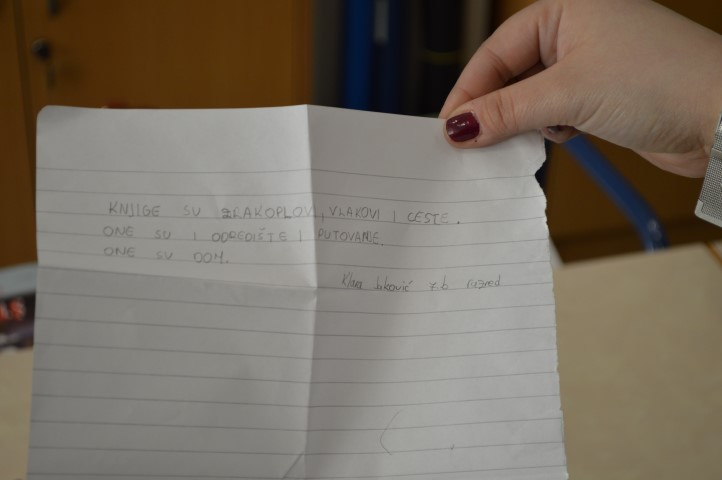 KNJIGE SU ZRAKOPLOVI, VLAKOVI I CESTE.
ONE SU I ODREDIŠTE I PUTOVANJE.
ONE SU DOM.
Klara 7.b razred